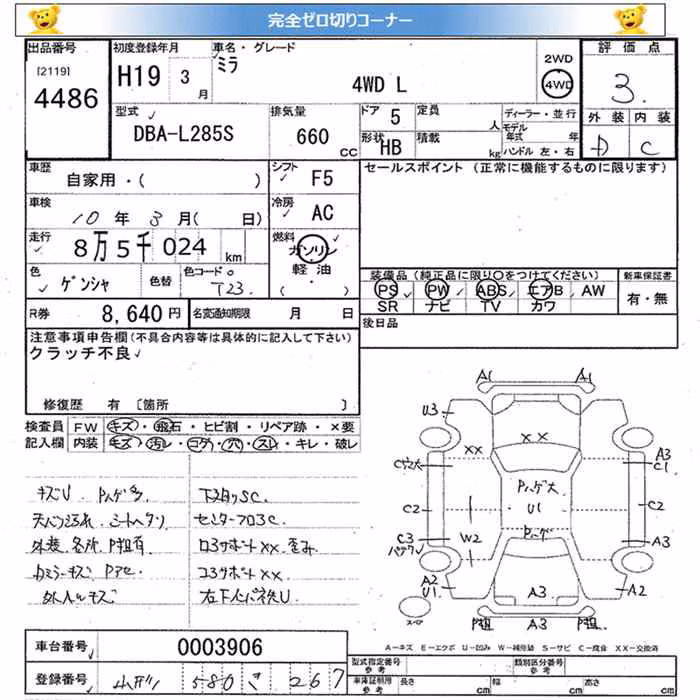 完全ゼロ切りコーナー
出品番号
[2119]
4486
初度登録年月
H19 3 月
車名・グレード
ミラ
4WD L
2WD
4WD
評価点
3.
外装 内装
D C
型式
DBA-L285S
排気量
660 CC
ドア 5
定員 人
形状 HB
積載 kg
ディーラー・並行
モデル年式 年
ハンドル 左・右
車歴
自家用・( )
シフト F5
車検
10 年 3 月( 日)
冷房 AC
走行
8万5千024 km
燃料
ガソリン
軽油
( ・ )
色
ゲンシャ
色替
色コード
T23.
セールスポイント (正常に機能するものに限ります)
装備品(純正品に限り○をつけてください)
PS PW ABS エアB AW
SR ナビ TV カワ
新車保証書
有・無
R券 8,640円
名変通知期限 月 日
後日品
注意事項申告欄(不具合内容等は具体的に記入して下さい)
クラッチ不良
修復歴 有 [箇所 ]
検査員記入欄
FW キズ・飛石・ヒビ割・リペア跡・×要
内装 キズ・汚レ・コゲ・穴・スレ・キレ・破レ
キズU Pハゲ多
天バリ汚れ シートヘタリ
外装 各所 P担有
下廻りSC
センターフロアC
コアサポートXX
A1 A1
U3
XX XX
A3
C1
Pハゲ大
U1
Pハゲ
C2 C2
C3
W2
A3
A2
U1
A3
A2
P担 A3 P担
スペア
A-キズ E-エクボ U-凹み W-補修跡 S-サビ C-腐食 XX-交換済
車台番号 0003906
登録番号 580 267
型式指定番号
参考
類別区分番号
参考
車庫証明用
参考
長さ cm
幅 cm
高さ cm